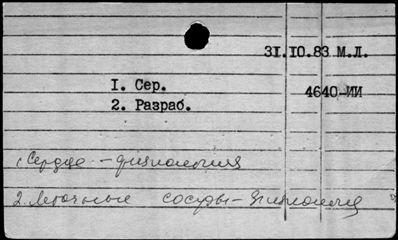 31.10.83 М.Л.
1. Сер.
4640-ИИ
2. Разраб.
1 Сердце - физиология
2. Легочные сосуды - физиология